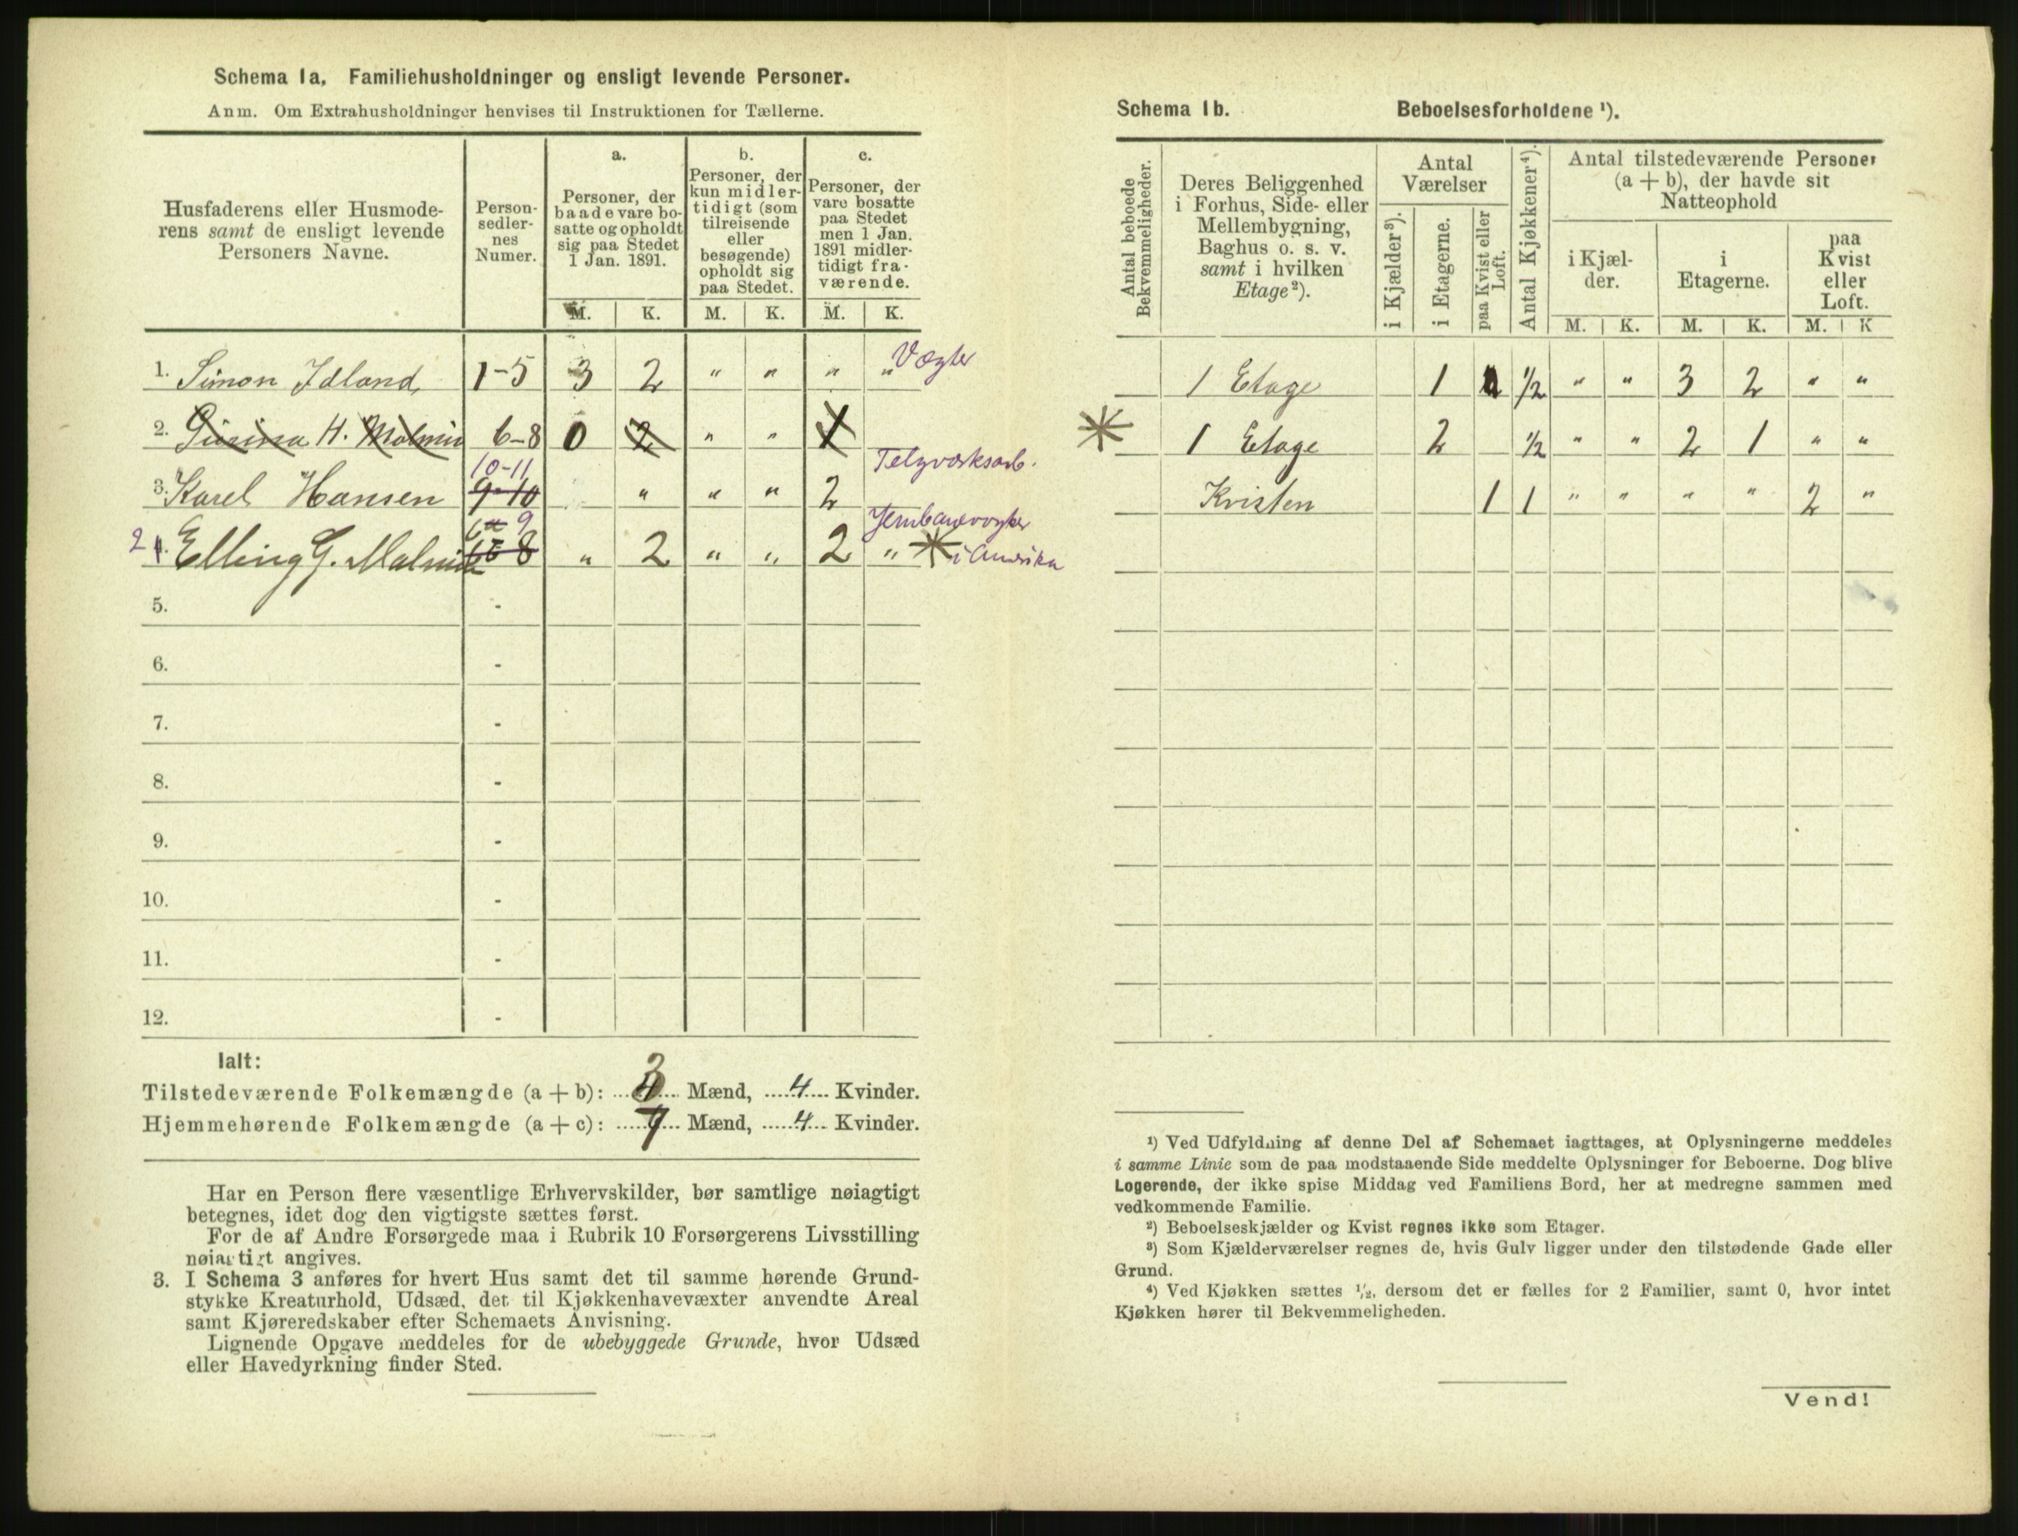 Schema 1a. Familiehusholdninger og ensligt levende Personer.
Anm. Om Extrahusholdninger henvises til Instruktionen for Tællerne.
Husfaderens eller Husmode-
rens samt de ensligt levende
Personers Navne.
Person-
sedler-
nes
Numer.
a.
Personer, der
baade vare bo-
satte og opholdt
sig paa Stedet
1 Jan. 1891.
b.
Personer, der
kun midler-
tidigt (som
tilreisende
eller
besøgende)
opholdt sig
paa Stedet.
c.
Personer, der
vare bosatte
paa Stedet
men 1 Jan.
1891 midler-
tidigt fra-
værende.
M. K. M. K. M. K.
1. Simon Idland, 1-5 3 2 " " " " Vægter
2. H. Malmin 6-8 0 2 " " 1
10-11
3. Karel Hansen 9-10 " " " 2
6 9
2 4. Elling G. Malmin 8 " 2 " " 2 " i Amerika
5. -
6. -
7. -
8. -
9. -
10. -
11. -
12. -
Ialt:
Tilstedeværende Folkemængde (a + b): 3 Mænd, 4 Kvinder.
Hjemmehørende Folkemængde (a + c): 7 Mænd, 4 Kvinder.
Har en Person flere væsentlige Erhvervskilder, bør samtlige nøiagtigt
betegnes, idet dog den vigtigste sættes først.
For de af Andre Forsørgede maa i Rubrik 10 Forsørgerens Livsstilling
nøiagtigt angives.
3. I Schema 3 anføres for hvert Hus samt det til samme hørende Grund-
stykke Kreaturhold, Udsæd, det til Kjøkkenhavevæxter anvendte Areal
samt Kjøreredskaber efter Schemaets Anvisning.
Lignende Opgave meddeles for de ubebyggede Grunde, hvor Udsæd
eller Havedyrkning finder Sted.
Schema 1b. Beboelsesforholdene ¹).
Antal beboede
Bekvemmeligheder.
Deres Beliggenhed
i Forhus, Side- eller
Mellembygning,
Baghus o. s. v.
samt i hvilken
Etage²).
Antal
Værelser
i Kjælder³).
i Etagerne.
paa Kvist eller
Loft.
Antal Kjøkkener⁴).
Antal tilstedeværende Personer
(a + b), der havde sit
Natteophold
i Kjæl-
der.
i
Etagerne.
paa
Kvist
eller
Loft.
M. K. M. K. M. K
1 Etage 1 1/2 " " 3 2 " "
1 Etage 2 1/2 " " 2 1 " "
Kvisten 1 1 " " " " 2 "
¹) Ved Udfyldning af denne Del af Schemaet iagttages, at Oplysningerne meddeles
i samme Linie som de paa modstaaende Side meddelte Oplysninger for Beboerne. Dog blive
Logerende, der ikke spise Middag ved Familiens Bord, her at medregne sammen med
vedkommende Familie.
²) Beboelseskjælder og Kvist regnes ikke som Etager.
³) Som Kjælderværelser regnes de, hvis Gulv ligger under den tilstødende Gade eller
Grund.
⁴) Ved Kjøkken sættes ½, dersom det er fælles for 2 Familier, samt 0, hvor intet
Kjøkken hører til Bekvemmeligheden.
Vend!